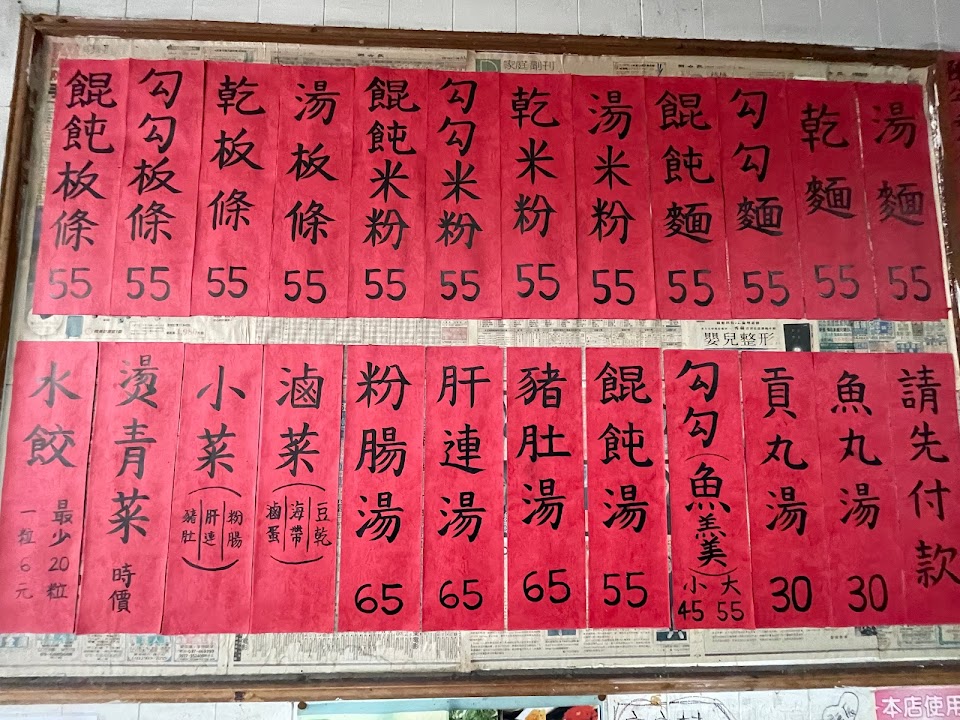 湯麵 55
乾麵 55
勾勾麵 55
餛飩麵 55
湯米粉 55
乾米粉 55
勾勾米粉 55
餛飩米粉 55
湯板條 55
乾板條 55
勾勾板條 55
餛飩板條 55
請先付款
魚丸湯 30
貢丸湯 30
勾勾(魚羹) 大55 小45
餛飩湯 55
豬肚湯 65
肝連湯 65
粉腸湯 65
滷菜(豆乾 海帶 滷蛋)
小菜(粉腸 肝連 豬肚)
燙青菜 時價
水餃 最少20粒 一粒6元
家庭副刊
嬰兒整形
本店使用